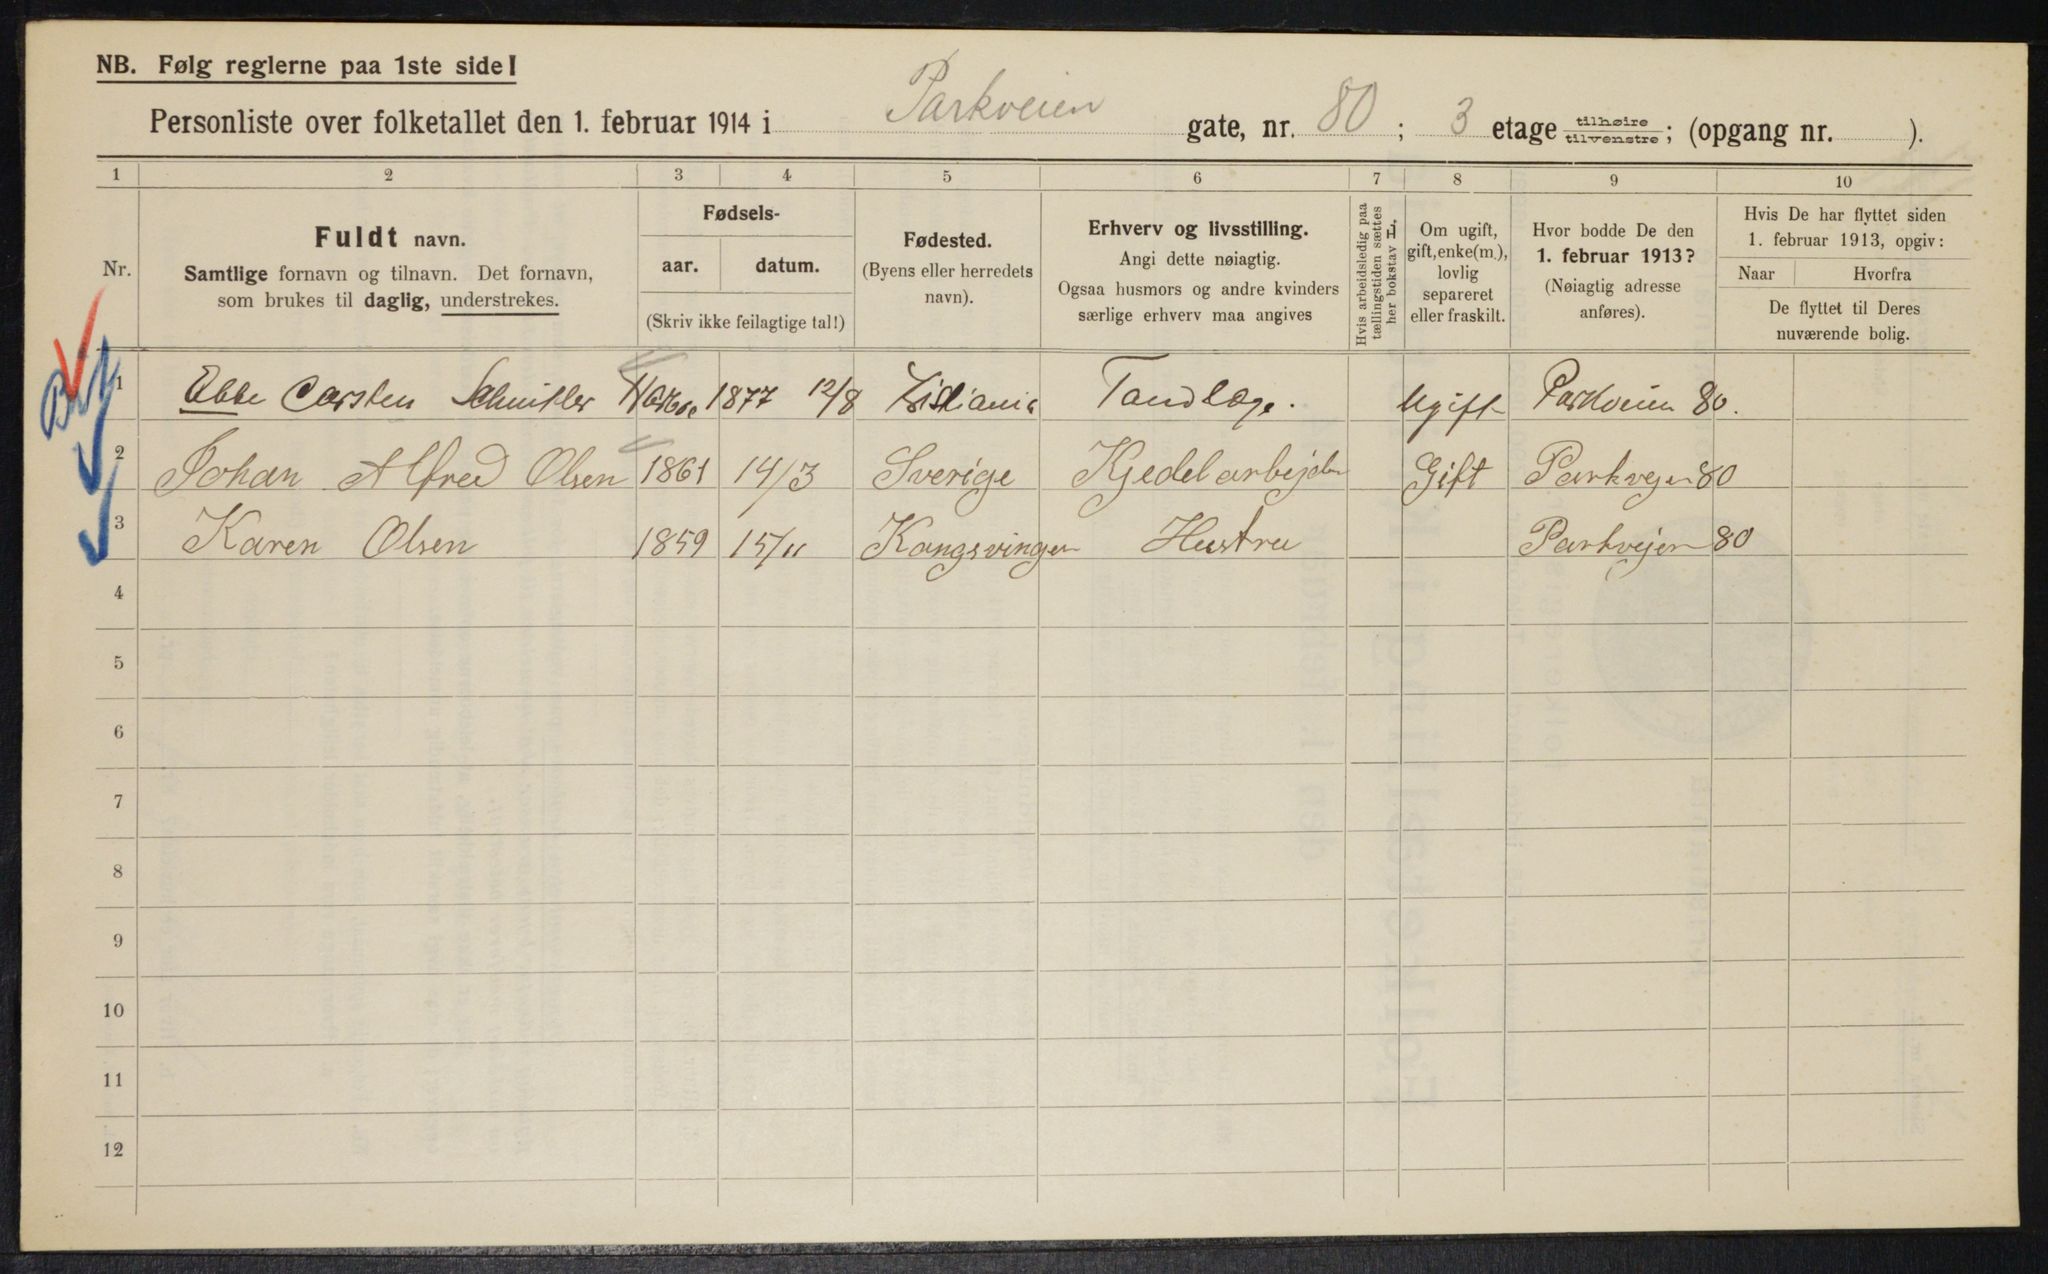 NB. Følg reglerne paa 1ste side!
Personliste over folketallet den 1. februar 1914 i Parkveien gate, nr. 80; 3 etage tilhøire tilvenstre; (opgang nr. ).
1 2 3 4 5 6 7 8 9 10
Nr.
Fuldt navn.
Samtlige fornavn og tilnavn. Det fornavn,
som brukes til daglig, understrekes.
Fødsels-
aar. datum.
(Skriv ikke feilagtige tal!)
Fødested.
(Byens eller herredets
navn).
Erhverv og livsstilling.
Angi dette nøiagtig.
Ogsaa husmors og andre kvinders
særlige erhverv maa angives
Hvis arbeidsledig paa
tællingstiden sættes
her bokstav L.
Om ugift,
gift, enke(m.),
lovlig
separeret
eller fraskilt.
Hvor bodde De den
1. februar 1913?
(Nøiagtig adresse
anføres).
Hvis De har flyttet siden
1. februar 1913, opgiv:
Naar Hvorfra
De flyttet til Deres
nuværende bolig.
1 Ebbe Carsten 1877 12/8 Kristiania Tandlæge. Ugift Parkveien 80.
2 Johan Alfred Olsen 1861 14/3 Sverige Kjedelarbejder Gift Parkvejen 80
3 Karen Olsen 1859 15/11 Kongsvinger Hustru Parkvejen 80
4
5
6
7
8
9
10
11
12